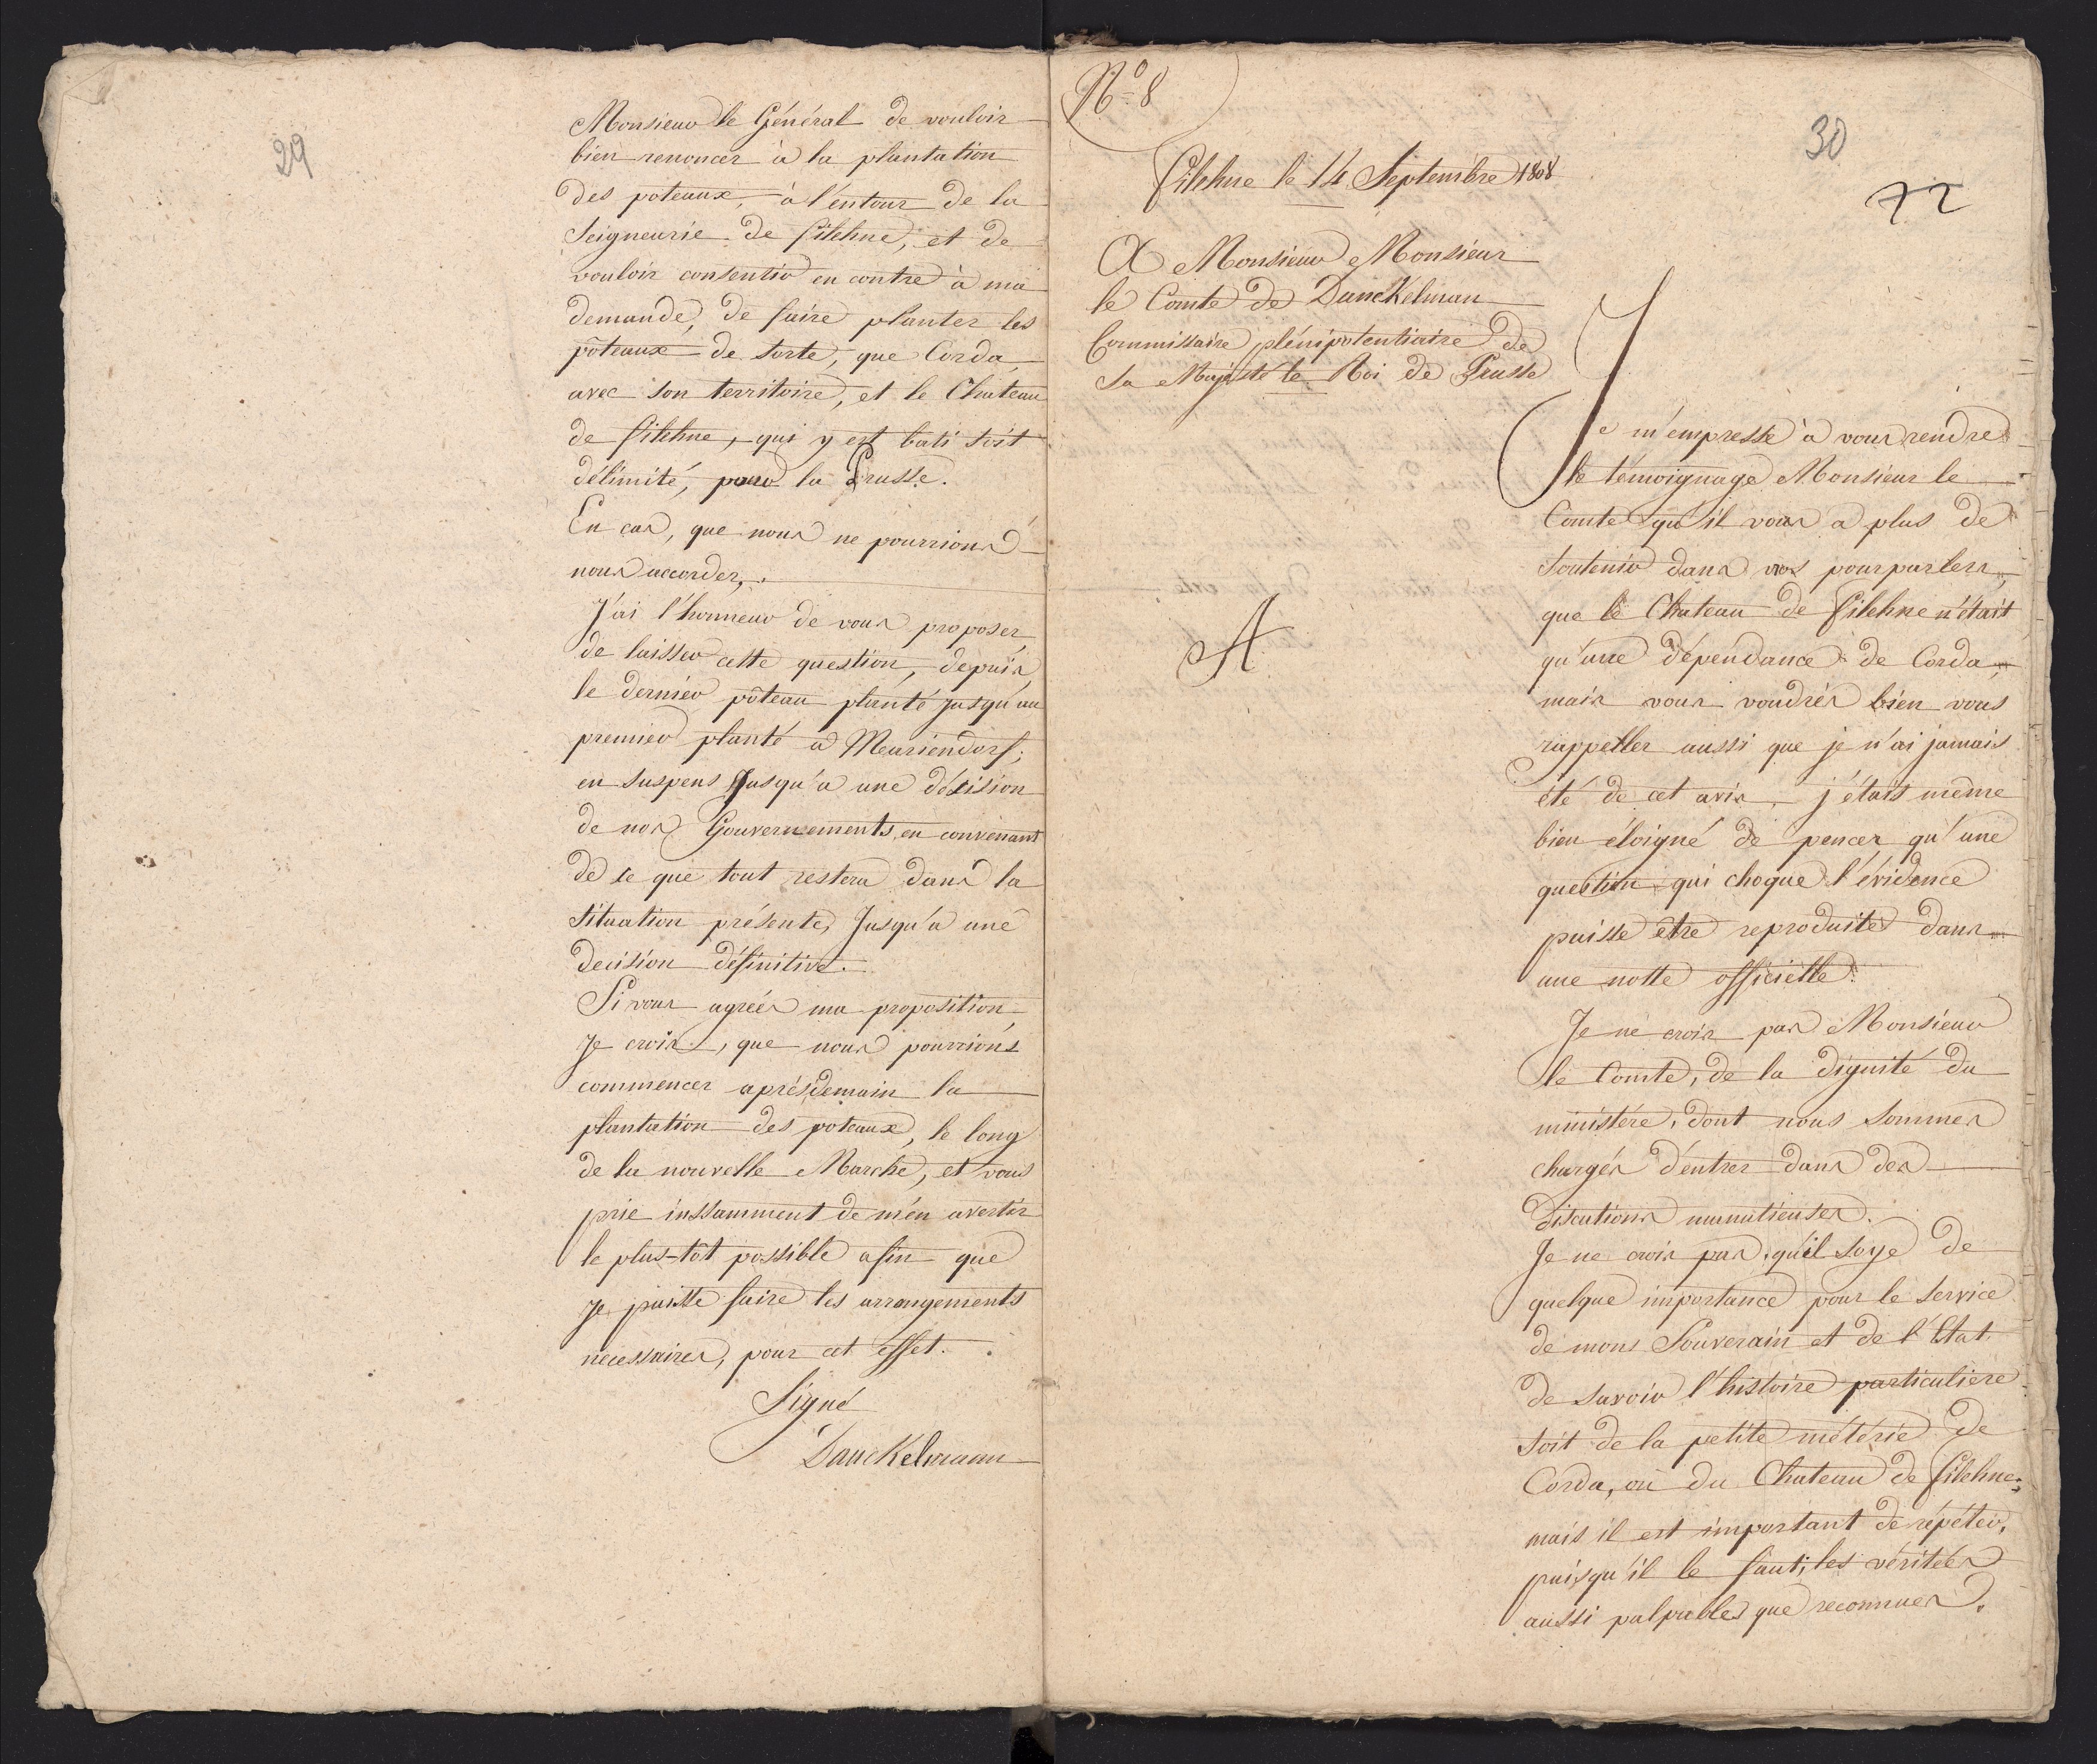 29
Monsieur le Général de vouloir
bien renoncer à la plantation
des poteaux, à l'entour de la
Seigneurie de filehne, et de
vouloir consentir en contre à ma
demande, de faire planter les
pôteaux de sorte, que Corda,
avec son territoire, et le Chateau
de filehne, qui y est bati soit
délimité, pour la Prusse.
En cas, que nous ne pourrions
nous accorder,
J'ai l'honneur de vous proposer
de laisser cette question, depuis
le dernier pôteau planté jusqu'au
premier planté a Meuriendorf;
en suspens Jusqu'a une décision
de nos Gouvernements, en convenant
de ce que tout restera dans la
situation présente, Jusqu'a une
decision définitive.
Si vous agreés ma proposition,
Je crois, que nous pourrions
commencer aprèsdemain la
plantation des poteaux, le long
de la nouvelle Marche, et vous
prie instamment de m'en avertir
le plus-tôt possible afin que
Je puisse faire les arrangements
necessaires, pour cet effet.
Signé
Danckelmann
No 8
30
72
Filehne le 14 Septembre 1808
A Monsieur Monsieur
le Comte de Danckelman
Commissaire plénipotentiaire de
Sa Majesté le Roi de Prusse
A
Je m'empresse à vous rendre
le témoignage Monsieur le
Comte qu'il vous a plus de
soutenir dans nos pourparlers,
que le Chateau de Filehne n'était
qu'une dépendance de Corda,
mais vous voudrés bien vous
rappeller aussi que je n'ai jamais
été de cet avis, j'étais même
bien éloigné de pencer qu'une
question qui choque l'évidence
puisse être reproduite dans
une notte officielle.
Je ne crois pas Monsieur
le Comte, de la dignité du
ministére, dont nous sommes
chargés d'entrer dans des
discutions munutieuses.
Je ne crois pas, qu'il soye de
quelque importance pour le service
de mons Souverain et de l'Etat
de savoir l'histoire particuliere
soit de la petite métérie de
Corda, ou du Chateau de filehne;
mais il est important de répéter,
puisqu'il le faut, les véritées
aussi palpables que reconnues.